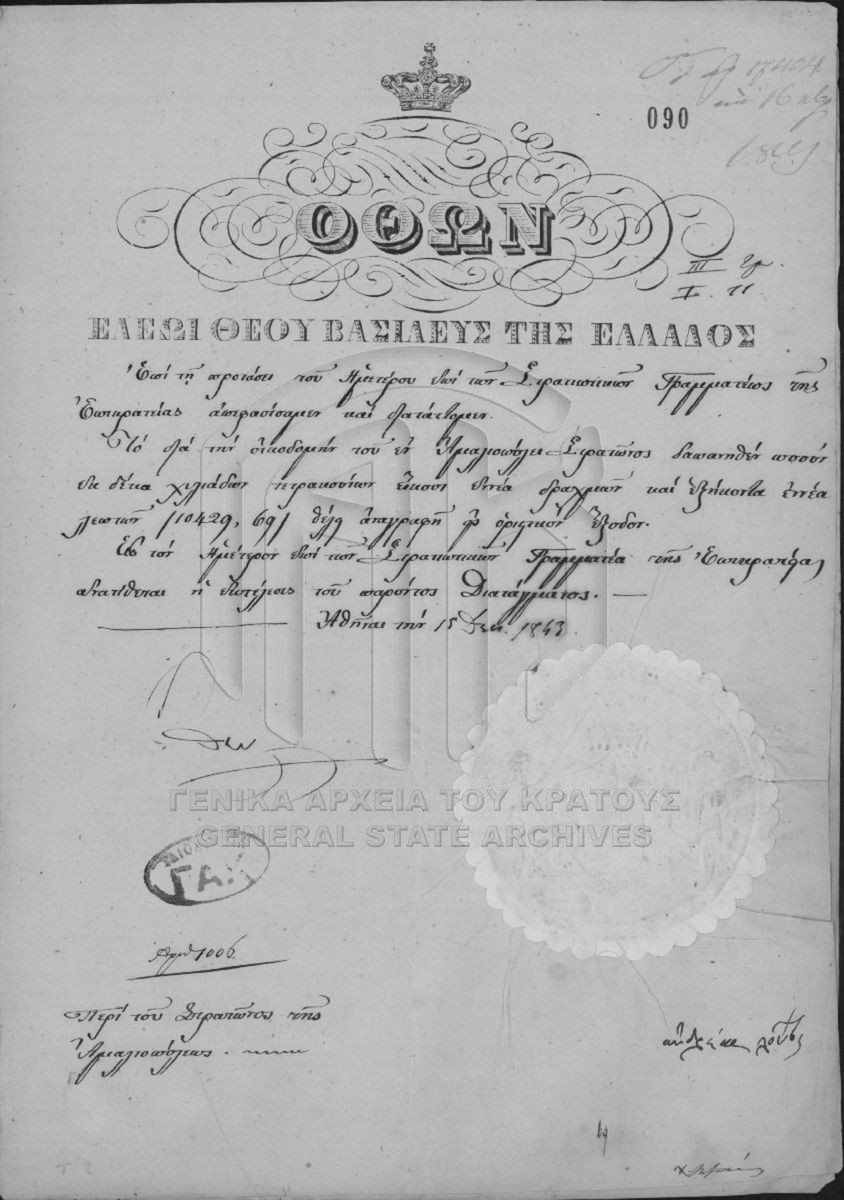 090
ΟΘΩΝ
ΕΛΕΩΙ ΘΕΟΥ ΒΑΣΙΛΕΥΣ ΤΗΣ ΕΛΛΑΔΟΣ
Ἐπὶ τῇ προτάσει τοῦ Ἡμετέρου ἐπὶ τῶν Στρατιωτικῶν Γραμματέως τῆς
Ἐπικρατείας ἀπεφασίσαμεν καὶ διατάττομεν.
Τὸ διὰ τὴν οἰκοδομὴν τοῦ ἐν Ἀμαλιοπόλει Στρατῶνος δαπανηθὲν ποσὸν
ἐκ δέκα χιλιάδων τετρακοσίων εἴκοσι ἐννέα δραχμῶν καὶ ἑξήκοντα ἐννέα
λεπτῶν /10429, 69/ θέλει ἀπαγραφῆ ὁριστικὸν ἔξοδον.
Εἰς τὸν Ἡμέτερον ἐπὶ τῶν Στρατιωτικῶν Γραμματέα τῆς Ἐπικρατείας
ἀνατίθεται ἡ ἐκτέλεσις τοῦ παρόντος Διατάγματος. —
Ἀθῆναι τὴν 15 Δεκ. 1843
ΓΕΝΙΚΑ ΑΡΧΕΙΑ ΤΟΥ ΚΡΑΤΟΥΣ
GENERAL STATE ARCHIVES
Γ.Α.Κ.
Ἀριθ 1006.
Περὶ τοῦ Στρατῶνος τῆς
Ἀμαλιοπόλεως.